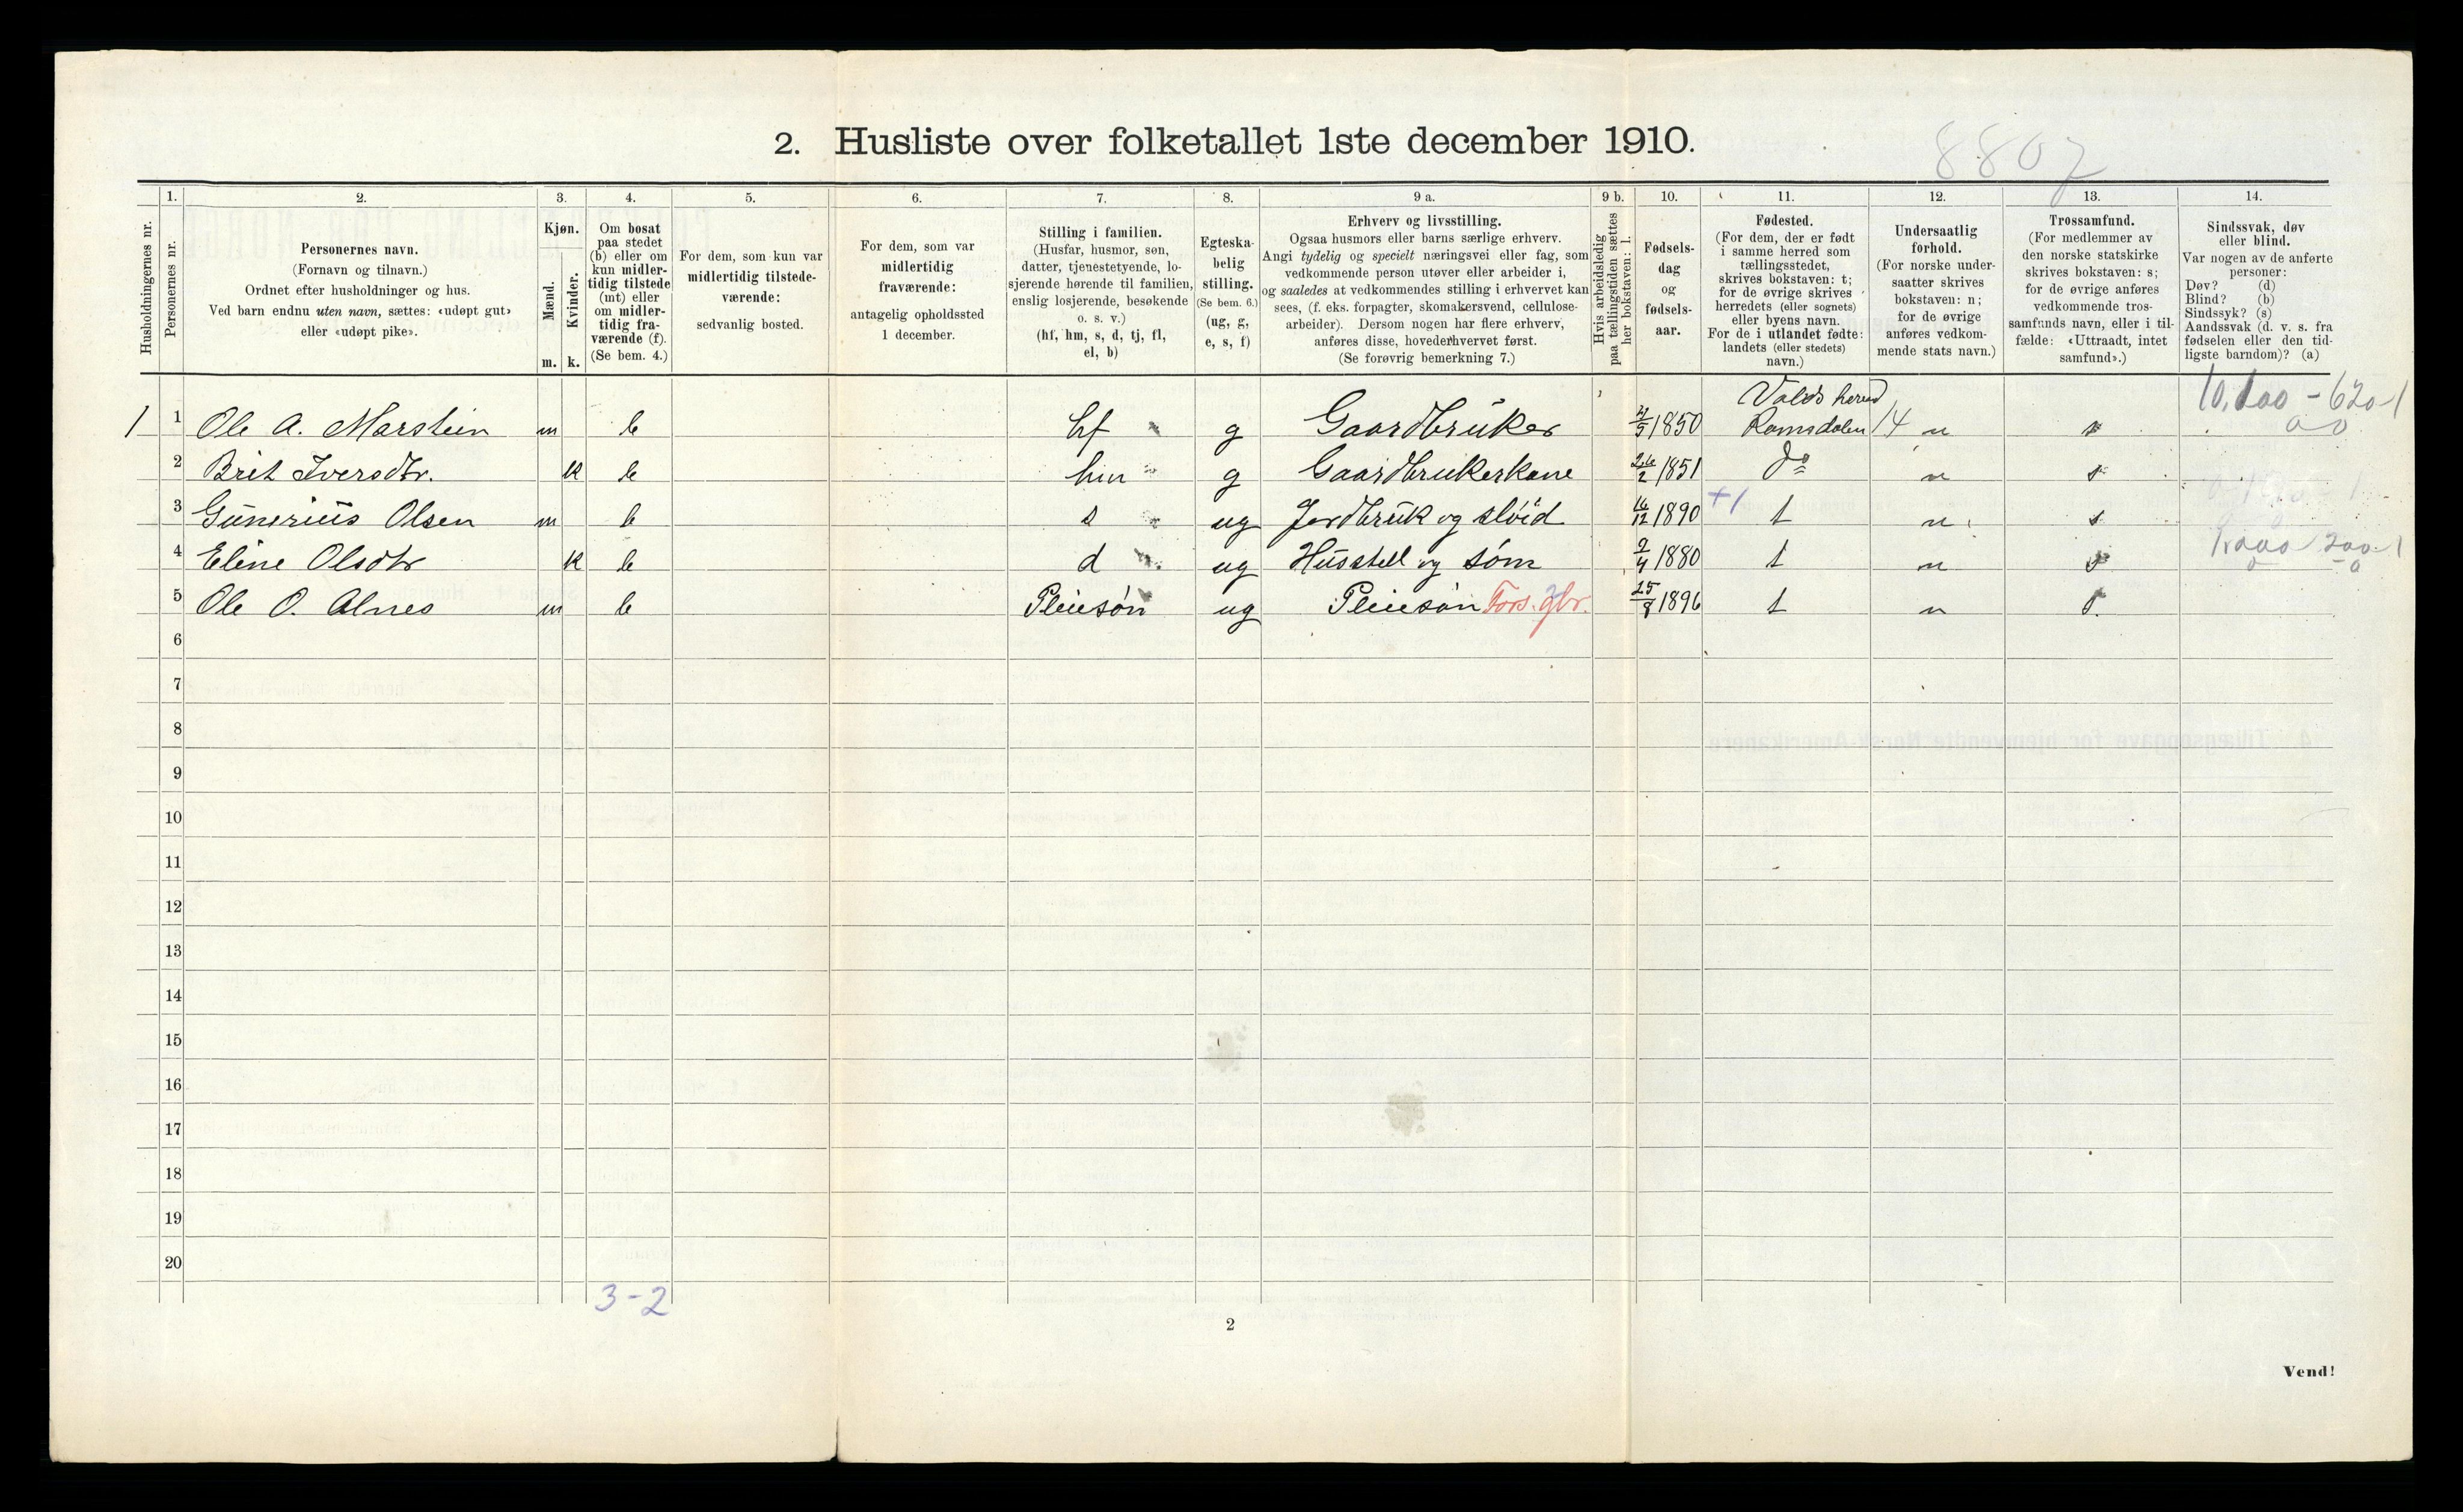 2. Husliste over folketallet 1ste december 1910.
8807
Husholdningernes nr.
1.
Personernes nr.
2.
Personernes navn.
(Fornavn og tilnavn.)
Ordnet efter husholdninger og hus.
Ved barn endnu uten navn, sættes: «udøpt gut»
eller «udøpt pike».
3.
Kjøn.
Mænd.
Kvinder.
m. k.
4.
Om bosat
paa stedet
(b) eller om
kun midler-
tidig tilstede
(mt) eller
om midler-
tidig fra-
værende (f).
(Se bem. 4.)
5.
For dem, som kun var
midlertidig tilstede-
værende:
sedvanlig bosted.
6.
For dem, som var
midlertidig
fraværende:
antagelig opholdssted
1 december.
7.
Stilling i familien.
(Husfar, husmor, søn,
datter, tjenestetyende, lo-
sjerende hørende til familien,
enslig losjerende, besøkende
o. s. v.)
(hf, hm, s, d, tj, fl,
el, b)
8.
Egteska-
belig
stilling.
(Se bem. 6.)
(ug, g,
e, s, f)
9 a.
Erhverv og livsstilling.
Ogsaa husmors eller barns særlige erhverv.
Angi tydelig og specielt næringsvei eller fag, som
vedkommende person utøver eller arbeider i,
og saaledes at vedkommendes stilling i erhvervet kan
sees, (f. eks. forpagter, skomakersvend, cellulose-
arbeider). Dersom nogen har flere erhverv,
anføres disse, hovederhvervet først.
(Se forøvrig bemerkning 7.)
9 b.
Hvis arbeidsledig
paa tællingstiden sættes
her bokstaven: l.
10.
Fødsels-
dag
og
fødsels-
aar.
11.
Fødested.
(For dem, der er født
i samme herred som
tællingsstedet,
skrives bokstaven: t;
for de øvrige skrives
herredets (eller sognets)
eller byens navn.
For de i utlandet fødte:
landets (eller stedets)
navn.)
12.
Undersaatlig
forhold.
(For norske under-
saatter skrives
bokstaven: n;
for de øvrige
anføres vedkom-
mende stats navn.)
13.
Trossamfund.
(For medlemmer av
den norske statskirke
skrives bokstaven: s;
for de øvrige anføres
vedkommende tros-
samfunds navn, eller i til-
fælde: «Uttraadt, intet
samfund».)
14.
Sindssvak, døv
eller blind.
Var nogen av de anførte
personer:
Døv? (d)
Blind? (b)
Sindssyk? (s)
Aandssvak (d. v. s. fra
fødselen eller den tid-
ligste barndom)? (a)
1 1 Ole A. Marstein m b hf g Gaardbruker 1850 Volds herred Romsdalen 14 n s
2 Brit Iversdtr. k b hm g Gaardbrukerkone 26/2 1851 do n s
3 Gunerius Olsen m b s ug Jordbruk og sløid 16/12 1890 +1 t n s
4 Eline Olsdtr k b d ug Husstell og søm 2/4 1880 t n s
5 Ole O. Alnes m b Pleiesøn ug Pleiesøn Fors. gbr. 25/8 1896 t n s.
6
7
8
9
10
11
12
13
14
15
16
17
18
19
20
3-2
2
Vend!